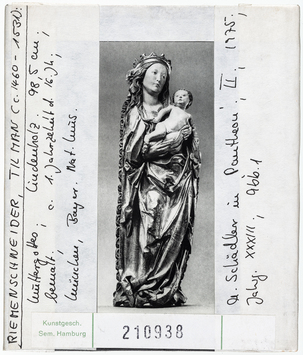 RIEMENSCHNEIDER, TILMAN (c. 1460 - 1531)
Muttergottes. Lindenholz. 98,5 cm;
bemalt. ; c. 1. Jahrzehnt d. 16. Jh;
München, Bayer. Nat. Mus.
A. Schädler in Pantheon; II; 1975;
Jahrg. XXXIII; Abb. 1
Kunstgesch.
Sem. Hamburg
210938